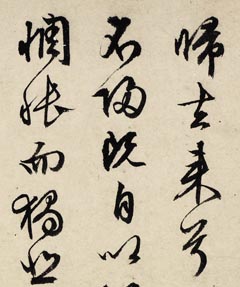 歸去来兮
不歸既自以
惆悵而獨悲